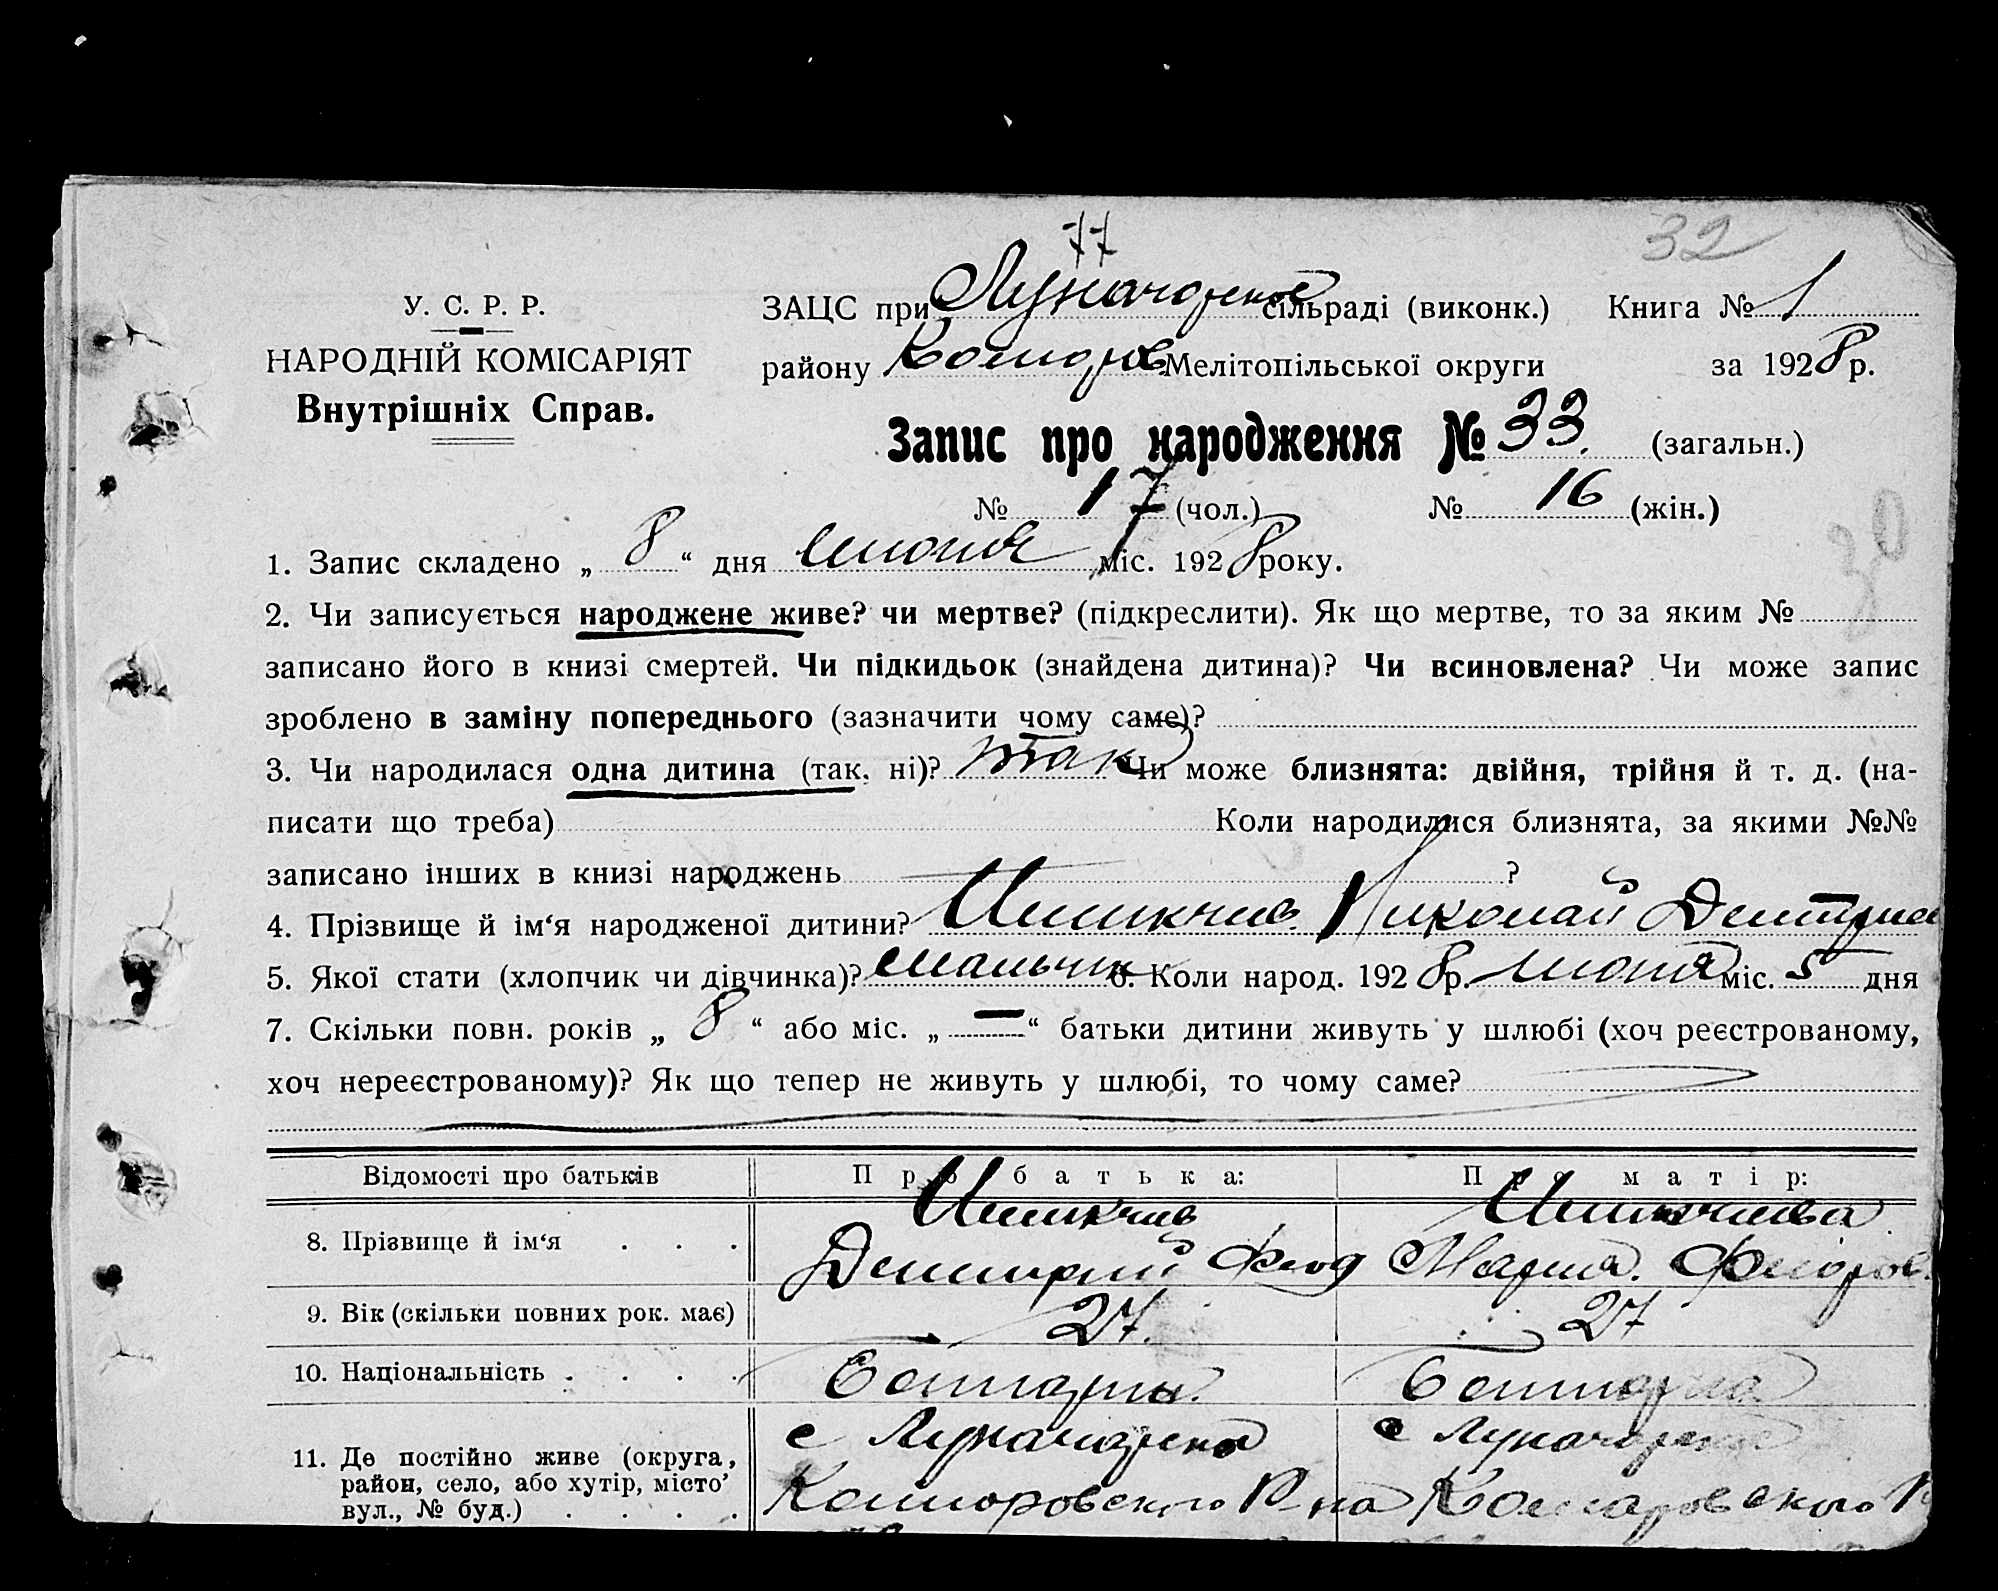 77
32
У. С. Р. Р.
НАРОДНІЙ КОМІСАРІЯТ
Внутрішніх Справ.
ЗАЦС при сільраді (виконк.) Книга № 1
району Мелітопільської округи за 1928 р.
Запис про народження № 33. (загальн.)
№ 17 (чол.) № 16 (жін.)
30
1. Запис складено „ 8 “ дня міс. 1928 року.
2. Чи записується народжене живе? чи мертве? (підкреслити). Як що мертве, то за яким №
записано його в книзі смертей. Чи підкидьок (знайдена дитина)? Чи всиновлена? Чи може запис
зроблено в заміну попереднього (зазначити чому саме)?
3. Чи народилася одна дитина (так, ні)? так Чи може близнята: двійня, трійня й т. д. (на-
писати що треба) Коли народилися близнята, за якими №№
записано інших в книзі народжень ?
4. Прізвище й ім‘я народженої дитини? Николай
5. Якої стати (хлопчик чи дівчинка)? мальчик 6. Коли народ. 1928 р. міс. 5 дня
7. Скільки повн. років „ 8 “ або міс. „ — “ батьки дитини живуть у шлюбі (хоч реєстрованому,
хоч нереєстрованому)? Як що тепер не живуть у шлюбі, то чому саме?
Відомості про батьків Про батька: Про матір:
8. Прізвище й ім‘я . . .
Дмитрий Феод Мария.
9. Вік (скільки повних рок. має) 27. 27
10. Національність . . . .
11. Де постійно живе (округа,
район, село, або хутір, місто
вул., № буд.) . . . .
с с